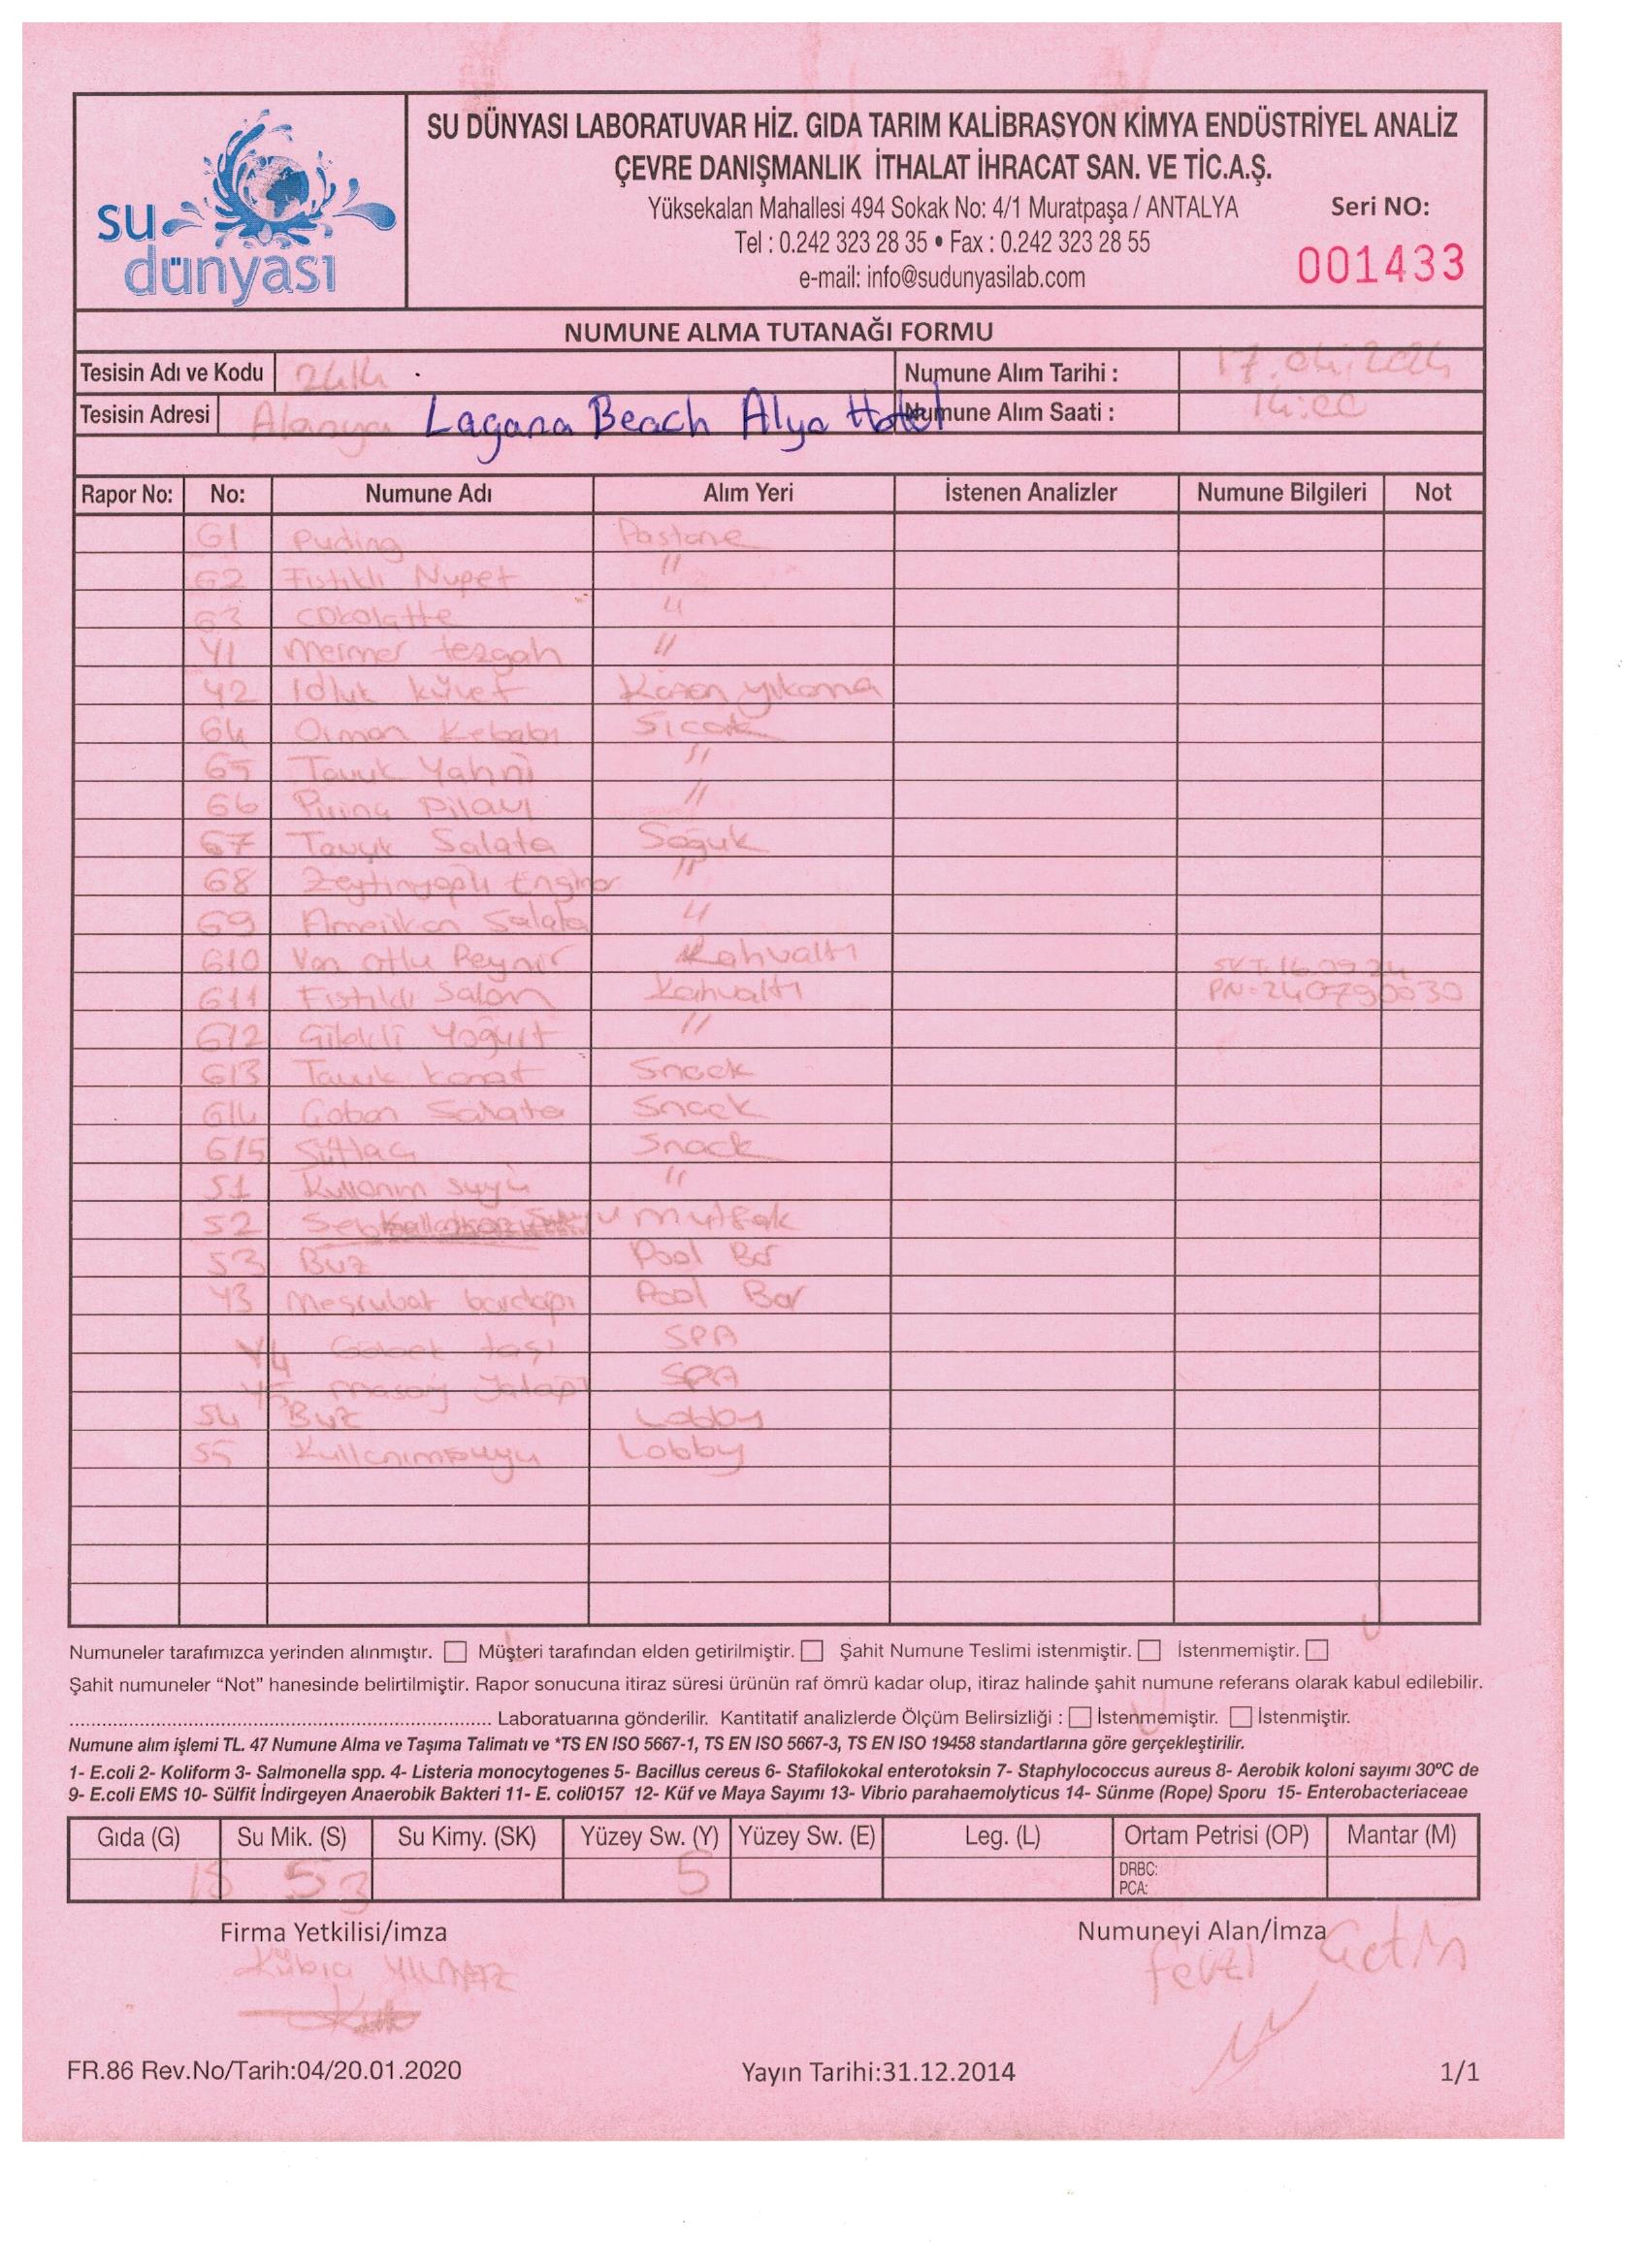 su
dünyası
SU DÜNYASI LABORATUVAR HİZ. GIDA TARIM KALİBRASYON KİMYA ENDÜSTRİYEL ANALİZ
ÇEVRE DANIŞMANLIK İTHALAT İHRACAT SAN. VE TİC.A.Ş.
Yüksekalan Mahallesi 494 Sokak No: 4/1 Muratpaşa / ANTALYA
Tel : 0.242 323 28 35 • Fax : 0.242 323 28 55
e-mail: info@sudunyasilab.com
Seri NO:
001433
NUMUNE ALMA TUTANAĞI FORMU
Tesisin Adı ve Kodu Numune Alım Tarihi : 17.04.2024
Tesisin Adresi Alanya Lagana Beach Alya Hotel Numune Alım Saati : 14:00
Rapor No: No: Numune Adı Alım Yeri İstenen Analizler Numune Bilgileri Not
G1 Puding Pastane
G2 Fıstıklı Nupet "
G3 cokolatte "
Y1 Mermer tezgah "
Y2 1 dluk küvet Kazan yıkama
G4 Orman Kebabı Sıcak
G5 Tavuk Yahni "
G6 Pirinç Pilavı "
G7 Tavuk Salata Soğuk
G8 Zeytinyağlı Enginar "
G9 Amerikan Salata "
G10 Van otlu Peynir Kahvaltı SKT: 16.09.24
G11 Fıstıklı Salam Kahvaltı PN=240790030
G12 Çilekli Yoğurt "
G13 Tavuk kanat Snack
G14 Çoban Salata Snack
G15 Sütlaç Snack
S1 Kullanım suyu "
S2 mutfak
S3 Buz Pool Bar
Y3 Meşrubat bardağı Pool Bar
Y4 Göbek taşı SPA
Y5 masaj yatağı SPA
S4 Buz Lobby
S5 Kullanımsuyu Lobby
Numuneler tarafımızca yerinden alınmıştır. Müşteri tarafından elden getirilmiştir. Şahit Numune Teslimi istenmiştir. İstenmemiştir.
Şahit numuneler “Not” hanesinde belirtilmiştir. Rapor sonucuna itiraz süresi ürünün raf ömrü kadar olup, itiraz halinde şahit numune referans olarak kabul edilebilir.
.......................................................................... Laboratuarına gönderilir. Kantitatif analizlerde Ölçüm Belirsizliği : İstenmemiştir. İstenmiştir.
Numune alım işlemi TL. 47 Numune Alma ve Taşıma Talimatı ve *TS EN ISO 5667-1, TS EN ISO 5667-3, TS EN ISO 19458 standartlarına göre gerçekleştirilir.
1- E.coli 2- Koliform 3- Salmonella spp. 4- Listeria monocytogenes 5- Bacillus cereus 6- Stafilokokal enterotoksin 7- Staphylococcus aureus 8- Aerobik koloni sayımı 30ºC de
9- E.coli EMS 10- Sülfit İndirgeyen Anaerobik Bakteri 11- E. coli0157 12- Küf ve Maya Sayımı 13- Vibrio parahaemolyticus 14- Sünme (Rope) Sporu 15- Enterobacteriaceae
Gıda (G) Su Mik. (S) Su Kimy. (SK) Yüzey Sw. (Y) Yüzey Sw. (E) Leg. (L) Ortam Petrisi (OP) Mantar (M)
15 5 5 DRBC:
PCA:
Firma Yetkilisi/imza Numuneyi Alan/İmza
Kübra YILMAZ Fevzi Çetin
FR.86 Rev.No/Tarih:04/20.01.2020 Yayın Tarihi:31.12.2014 1/1